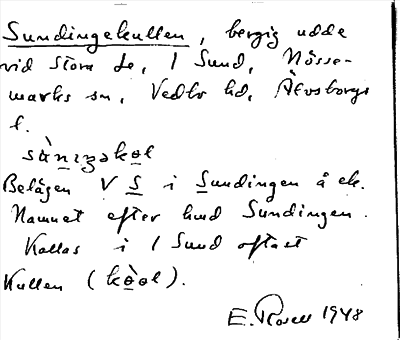 Sundingekullen, bergig udde
vid Stora Le, 1 Sund, Nösse-
marks sn, Vedbo hd, Älvsborgs
l.
Belägen V S i Sundingen å ek.
Namnet efter hmd Sundingen.
Kallas i 1 Sund oftast
Kullen
E. Rosell 1948